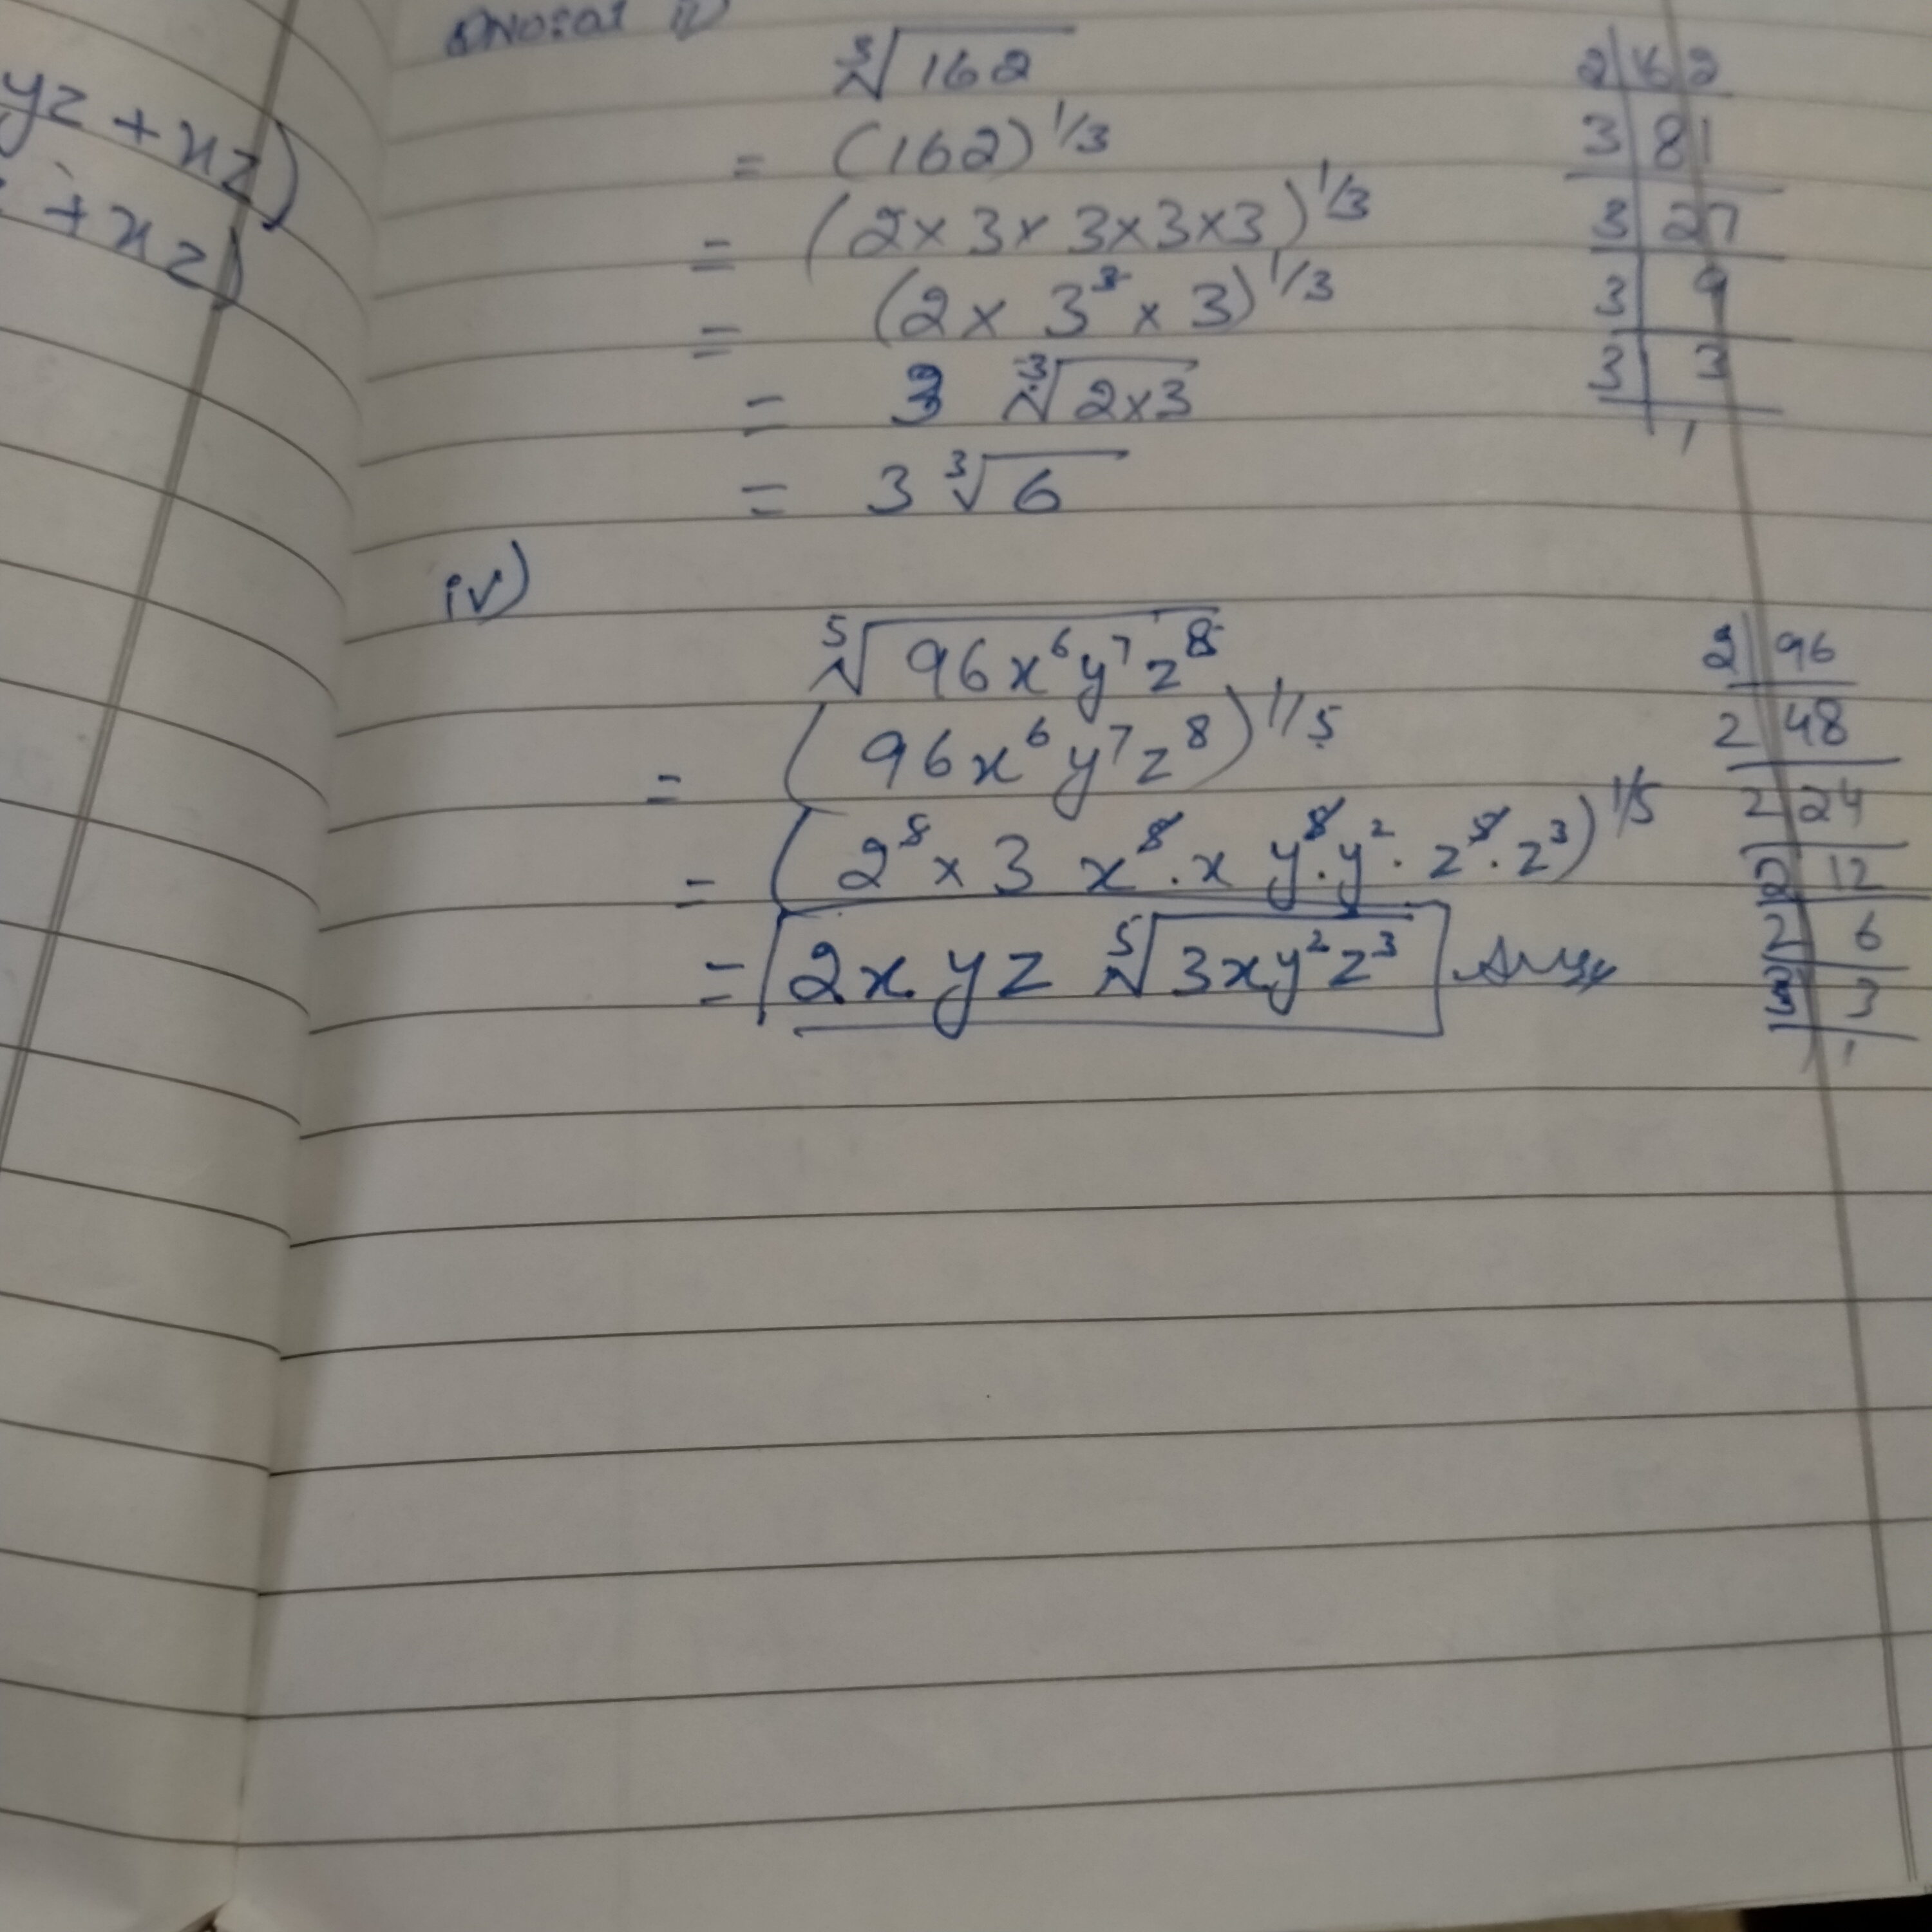 yz + xz)
+ xz)
ii)
∛162
= (162)^1/3
= (2 × 3 × 3 × 3 × 3)^1/3
= (2 × 3^3 × 3)^1/3
= 3 ∛2×3
= 3 ∛6
2 | 162
3 | 81
3 | 27
3 | 9
3 | 3
1
iv)
⁵√96x⁶y⁷z⁸
= (96x⁶y⁷z⁸)^1/5
= (2⁵ × 3 x⁵ . x y⁵ . y² . z⁵ . z³)^1/5
= 2xyz ⁵√3xy²z³ Ans
2 | 96
2 | 48
2 | 24
2 | 12
2 | 6
3 | 3
1